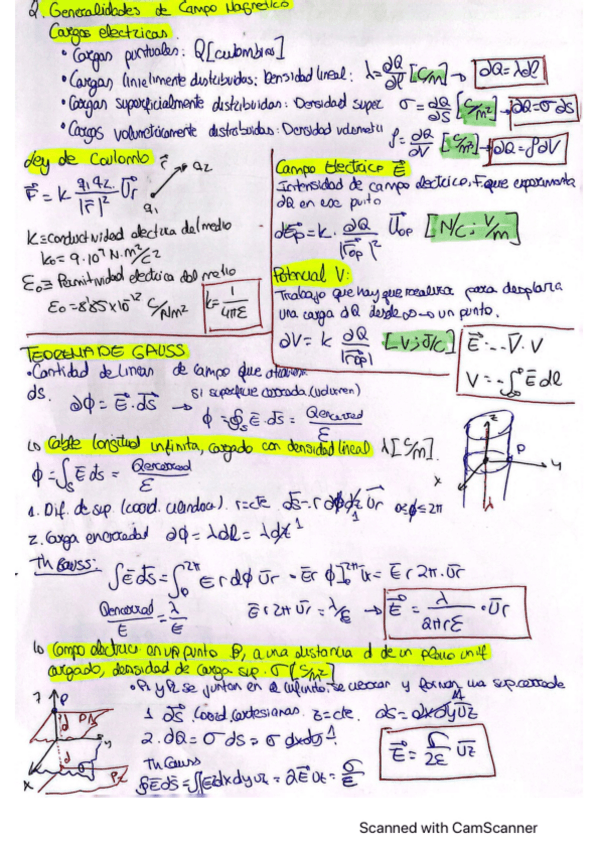 2. Generalidades de Campo Magnético
Cargas electricas.
• Cargas puntuales: Q [culombios]
• Cargas linealmente distribuidas: Densidad lineal: λ = ∂Q/∂l [C/m] → ∂Q = λ∂l
• Cargas superficialmente distribuidas: Densidad super σ = ∂Q/∂S [C/m²] → ∂Q = σ ∂S
• Cargas volumétricamente distribuidas: Densidad volumetri ρ = ∂Q/∂V [C/m³] → ∂Q = ρ∂V
Ley de Coulomb
F = k q₁q₂/|r|² · Ur
r
q₂
q₁
K ≡ conductividad electrica del medio
K₀ = 9·10⁹ N·m²/C²
ε₀ ≡ Permitividad electrica del medio
ε₀ = 8'85×10⁻¹² C/Nm²
k = 1/4πε
Campo Electrico E
Intensidad de campo electrico. F que experimenta
∂Q en ese punto
dEp = k · ∂Q/|rop|² Uop [N/C; V/m]
Potencial V:
Trabajo que hay que realizar para desplazar
una carga dQ desde ∞ → un punto.
∂V = k ∂Q/|rop| [V; J/C]
E = -∇·V
V = -∫ E dl
TEOREMA DE GAUSS
• Cantidad de lineas de campo que
ds. ∂Φ = E · ds → si superficie cerrada (volumen) Φ = ∮s E·ds = Qencerrad/ε
↳ Cable longitud infinita, cargado con densidad lineal λ [C/m].
Φ = ∫s E ds = Qencerrad/ε
z
P
y
x
λ
1. Dif. de sup. (coord. cilindrica). r=cte ds = r dϕ dz Ur 0≤ϕ≤2π
2. Carga encerrada ∂Q = λdl = λdz
Th Gauss: ∫E ds = ∫₀²π E r dϕ Ur = Er ϕ]₀²π Ur = E r 2π · Ur
Qencerrad/ε = λ/ε E r 2π Ur = λ/ε → E = λ/2πrε · Ur
↳ Campo electrico en un punto P, a una distancia d de un plano unif
cargado, densidad de carga sup. σ [C/m²]
• P₁ y P₂ se juntan en el infinito, se cierran y forman una sup. cerrada
1. ds. Coord. Cartesianas. z = cte. ds = dxdy Uz
2. dQ = σ ds = σ dxdy
Th Gauss
∮E ds = ∬ E dxdy uz = 2E Uz = σ/ε
E = σ/2ε Uz
P
d
P₁
y
d
x
P₂
Scanned with CamScanner